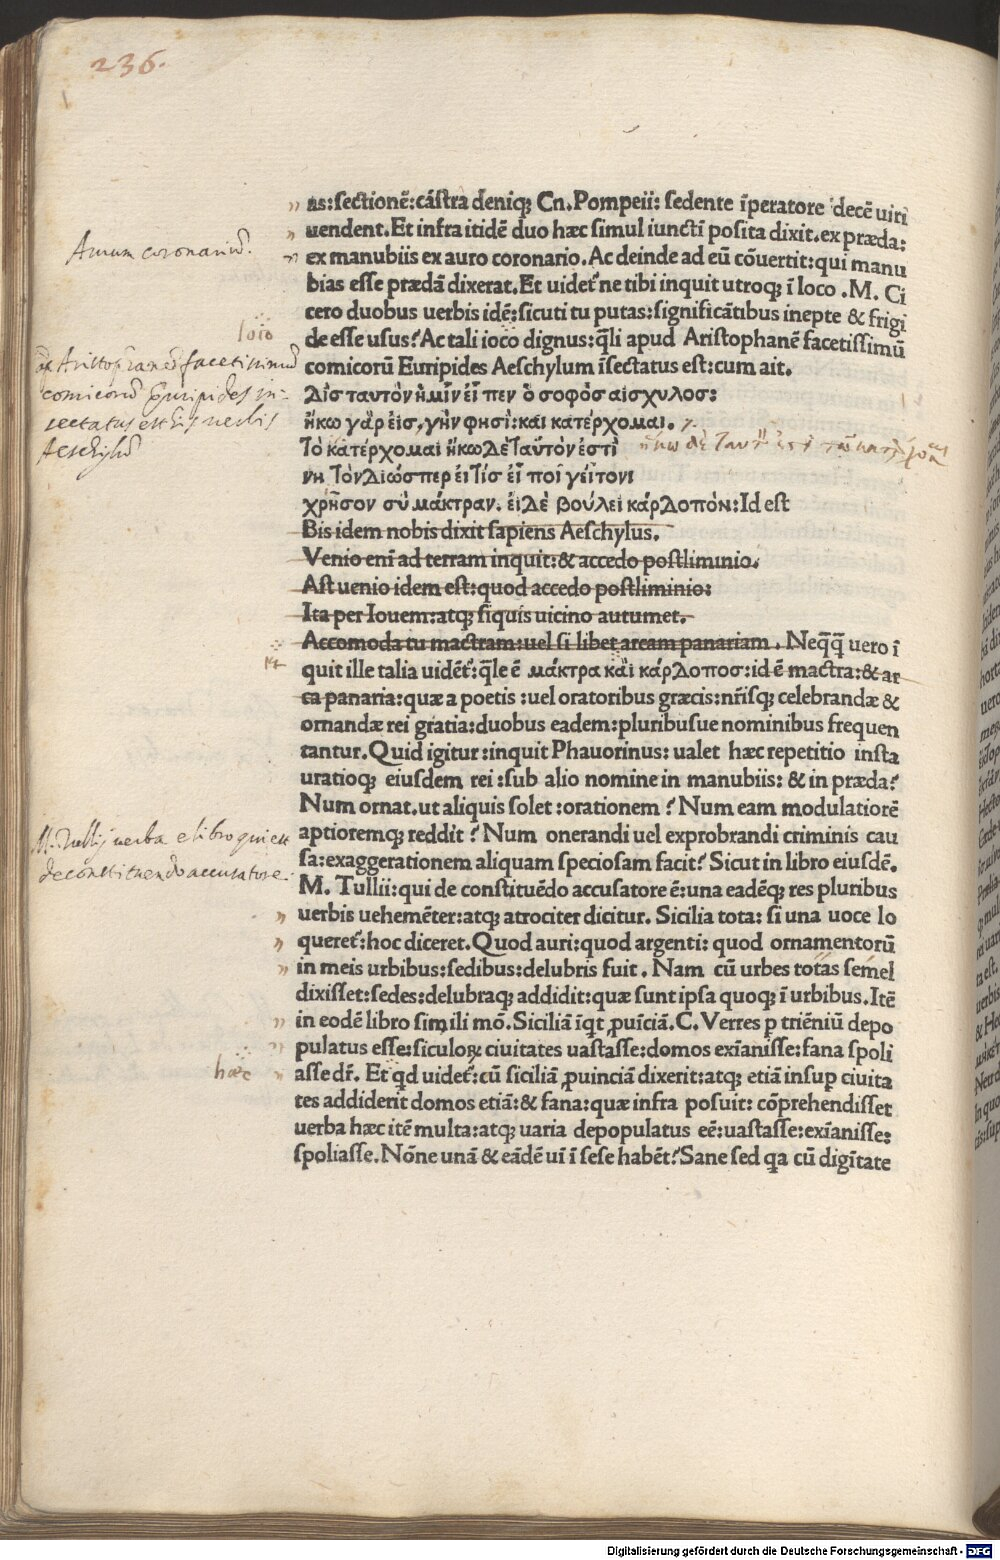 236.
as:sectionē:cástra deniq; Cn.Pompeii: sedente īperatore decē uiri
uendent.Et infra itidē duo hæc simul iuncti posita dixit.ex præda:
Aurum coronariū.
ex manubiis ex auro coronario.Ac deinde ad eū cōuertit:qui manu
bias esse prædā dixerat.Et uidet᷑ ne tibi inquit utroq; ī loco .M. Ci
cero duobus uerbis idē:sicuti tu putas:significātibus inepte & frigi
ioio
de esse usus? Ac tali ioco dignus:q̄li apud Aristophanē facetissimū
Aristophanē facetissimū
comicorū Euripides in-
sectatus est his uerbis
Aeschylū
comicorū Euripides Aeschylum īsectatus est:cum ait.
Δὶσ ταυτὸν ἡμῖν εἶ πεν ὁ σοφὸσ αἰσχυλοσ:
ἥκω γὰρ εἰσ, γῆν φησὶ: καὶ κατέρχομαι.
Τὸ κατέρχομαι ἥκω δὲ Ταὐτόν ἐστὶ
νη Τὸν Δί ὥσπερ εἰ Τὶσ εἶ ποι γείτονι
χρῆσον σὺ μάκτραν. εἰ Δὲ βούλει κάρΔοπὸν: Id est
Bis idem nobis dixit sapiens Aeschylus.
Venio enī ad terram inquit:& accedo postliminio.
Ast uenio idem est:quod accedo postliminio:
Ita per Iouem:atq; siquis uicino autumet.
Accomoda tu mactram:uel si libet arcam panariam . Neq̄q̄ uero ī
quit ille talia uidēt᷑:q̄le ē μάκτρα καὶ κάρΔοποσ:id ē mactra:& ar
ca panaria:quæ a poetis :uel oratoribus græcis:nr̄isq; celebrandæ &
ornandæ rei gratia:duobus eadem:pluribusue nominibus frequen
tantur.Quid igitur:inquit Phauorinus: ualet hæc repetitio insta
uratioq; eiusdem rei :sub alio nomine in manubiis: & in præda?
Num ornat.ut aliquis solet :orationem ? Num eam modulatiorē
aptioremq; reddit ? Num onerandi uel exprobrandi criminis cau
M. Tullij uerba e libro qui est
de constituendo accusatore.
sa:exaggerationem aliquam speciosam facit? Sicut in libro eiusdē.
M. Tullii:qui de constituēdo accusatore ē:una eadēq; res pluribus
uerbis uehemēter:atq; atrociter dicitur. Sicilia tota: si una uoce lo
queret᷑:hoc diceret.Quod auri:quod argenti: quod ornamentorū
in meis urbibus:sedibus:delubris fuit . Nam cū urbes totas semel
dixisset:sedes:delubraq; addidit:quæ sunt ipsa quoq; ī urbibus.Itē
in eodē libro simili mō.Siciliā īqt ꝓuīciā.C. Verres p triēniū depo
pulatus esse:siculoꝝ ciuitates uastasse:domos exīanisse:fana spoli
hæc
asse dr̄. Et qd uidet᷑:cū siciliā ꝓuinciā dixerit:atq; etiā insup ciuita
tes addiderit domos etiā:& fana:quæ infra posuit: cōprehendisset
uerba hæc itē multa:atq; uaria depopulatus eē:uastasse:exīanisse:
spoliasse.Nōne unā & eādē uī ī sese habēt? Sane sed qa cū digītate
Digitalisierung gefördert durch die Deutsche Forschungsgemeinschaft - DFG